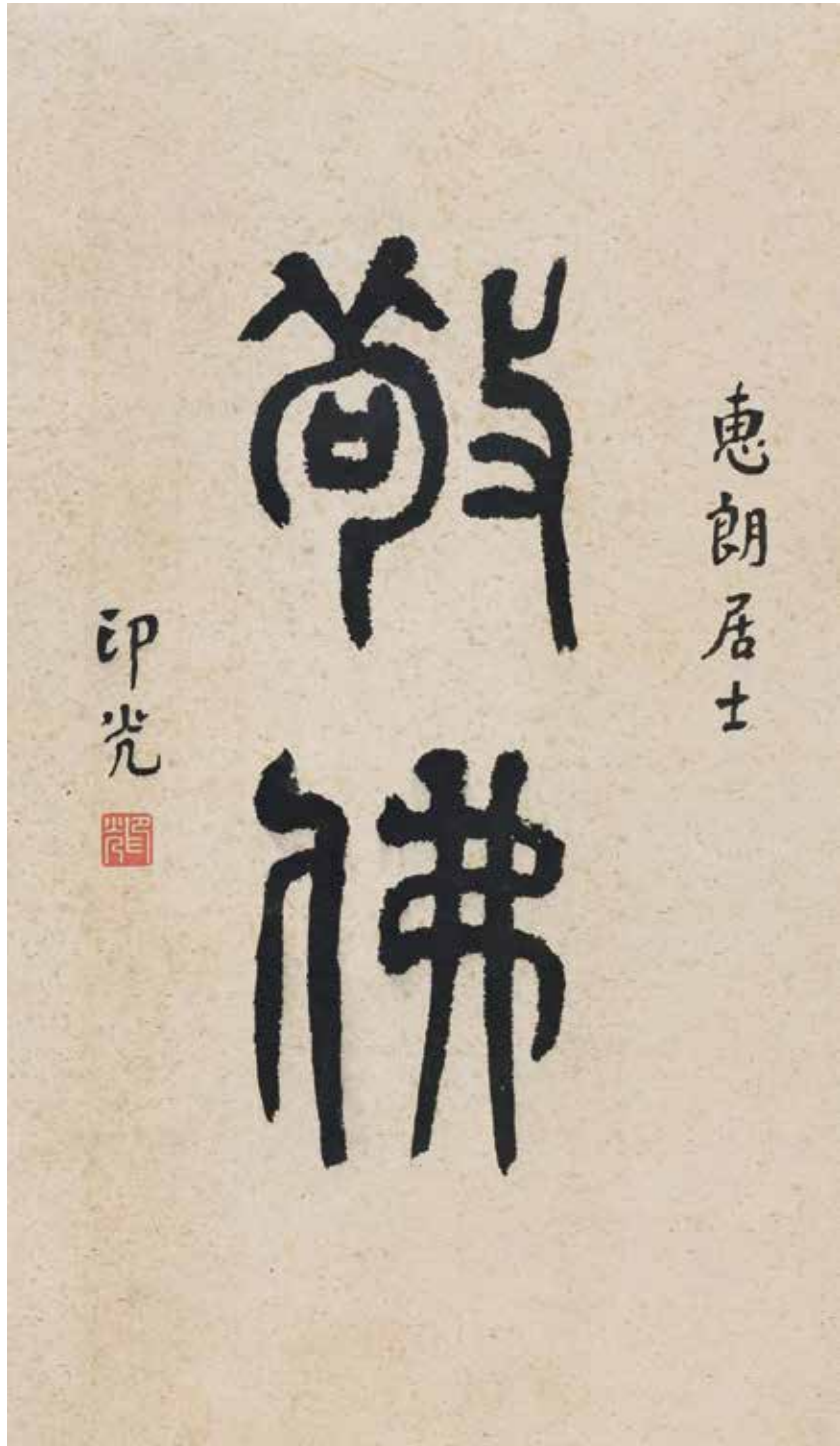 惠朗居士
敬佛
印光
印光